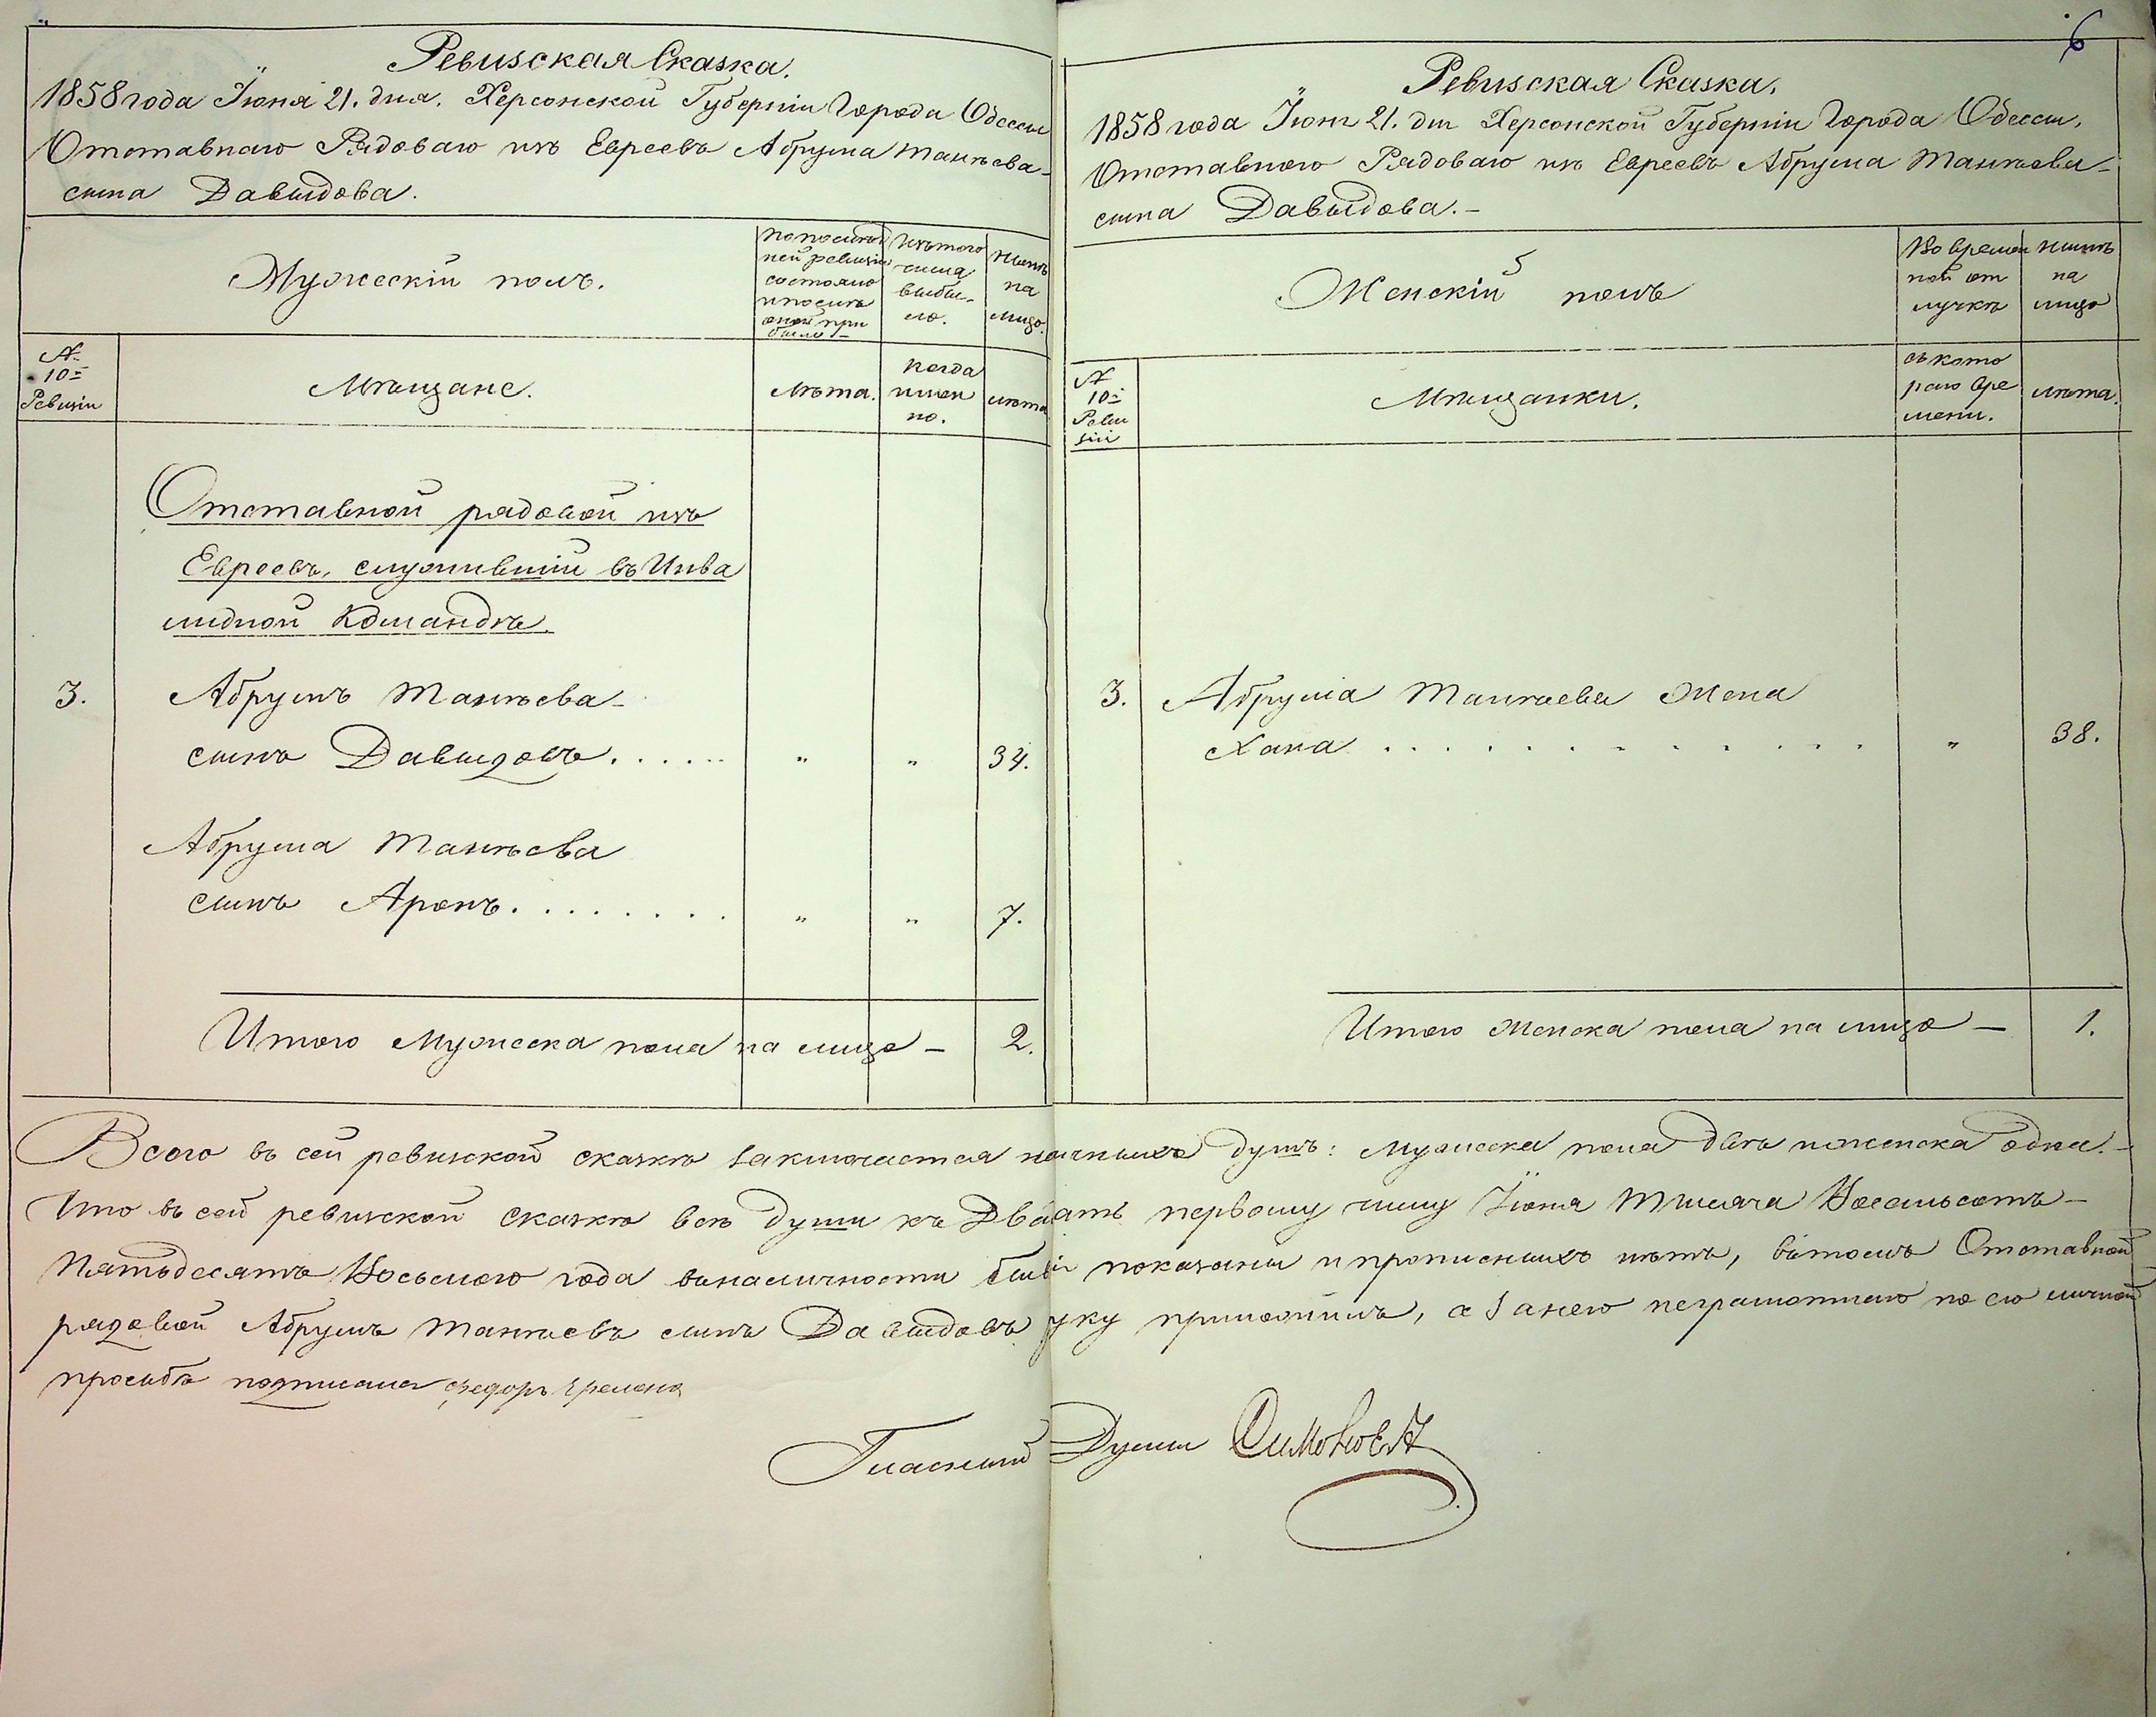 Ревизская Сказка.
1858 года Іюня 21. дня. Херсонской Губерніи Города Одессы
Отставнаго Рядоваго изъ Евреевъ Абрума Манѣева
сына Давыдова.
Мужескій полъ.
по послѣд
ней ревизіи
состояло
и послѣ
оной при
было
Изъ того
числа
выбы-
ло.
Нынѣ
на
лицо.
№
10й
Ревизіи
Мѣщане.
Лѣта.
когда
имен
но.
лѣта
Отставной рядовой изъ
Евреевъ, служившій въ Инва
лидной Командѣ.
3. Абрумъ Манѣева
сынъ Давыдовъ. . . . . . " " 34.
Абрума Манѣева
сынъ Аронъ. . . . . . . . " " 7.
Итого Мужеска пола на лицо — 2.
6
Ревизская Сказка.
1858 года Іюня 21. дня Херсонской Губерніи Города Одессы,
Отставнаго Рядоваго изъ Евреевъ Абрума Манѣева
сына Давыдова. —
Женскій полъ
Во времен
ной от
лучкѣ
Нынѣ
на
лицо
№
10й
Реви
зіи
Мѣщанки.
съ кото
раго вре
мени.
лѣта.
3. Абрума Манѣева жена
Хана . . . . . . . . . . . . " 38.
Итого женска пола на лицо — 1.
Всего въ сей ревизской сказкѣ заключается наличныхъ душъ: мужеска пола двѣ и женска одна. —
Что въ сей ревизской сказкѣ всѣ души къ Двадцать первому числу Іюня Тысяча Восемьсотъ —
Пятьдесятъ Восьмого года въ наличности бывшіе показаны и прописныхъ нѣтъ, въ томъ Отставной
рядовой Абрумъ Манѣевъ сынъ Давыдовъ руку приложилъ, а за него неграмотнаго по его личной
просьбѣ подписалъ Федоръ
Гласный Думы Симоновъ